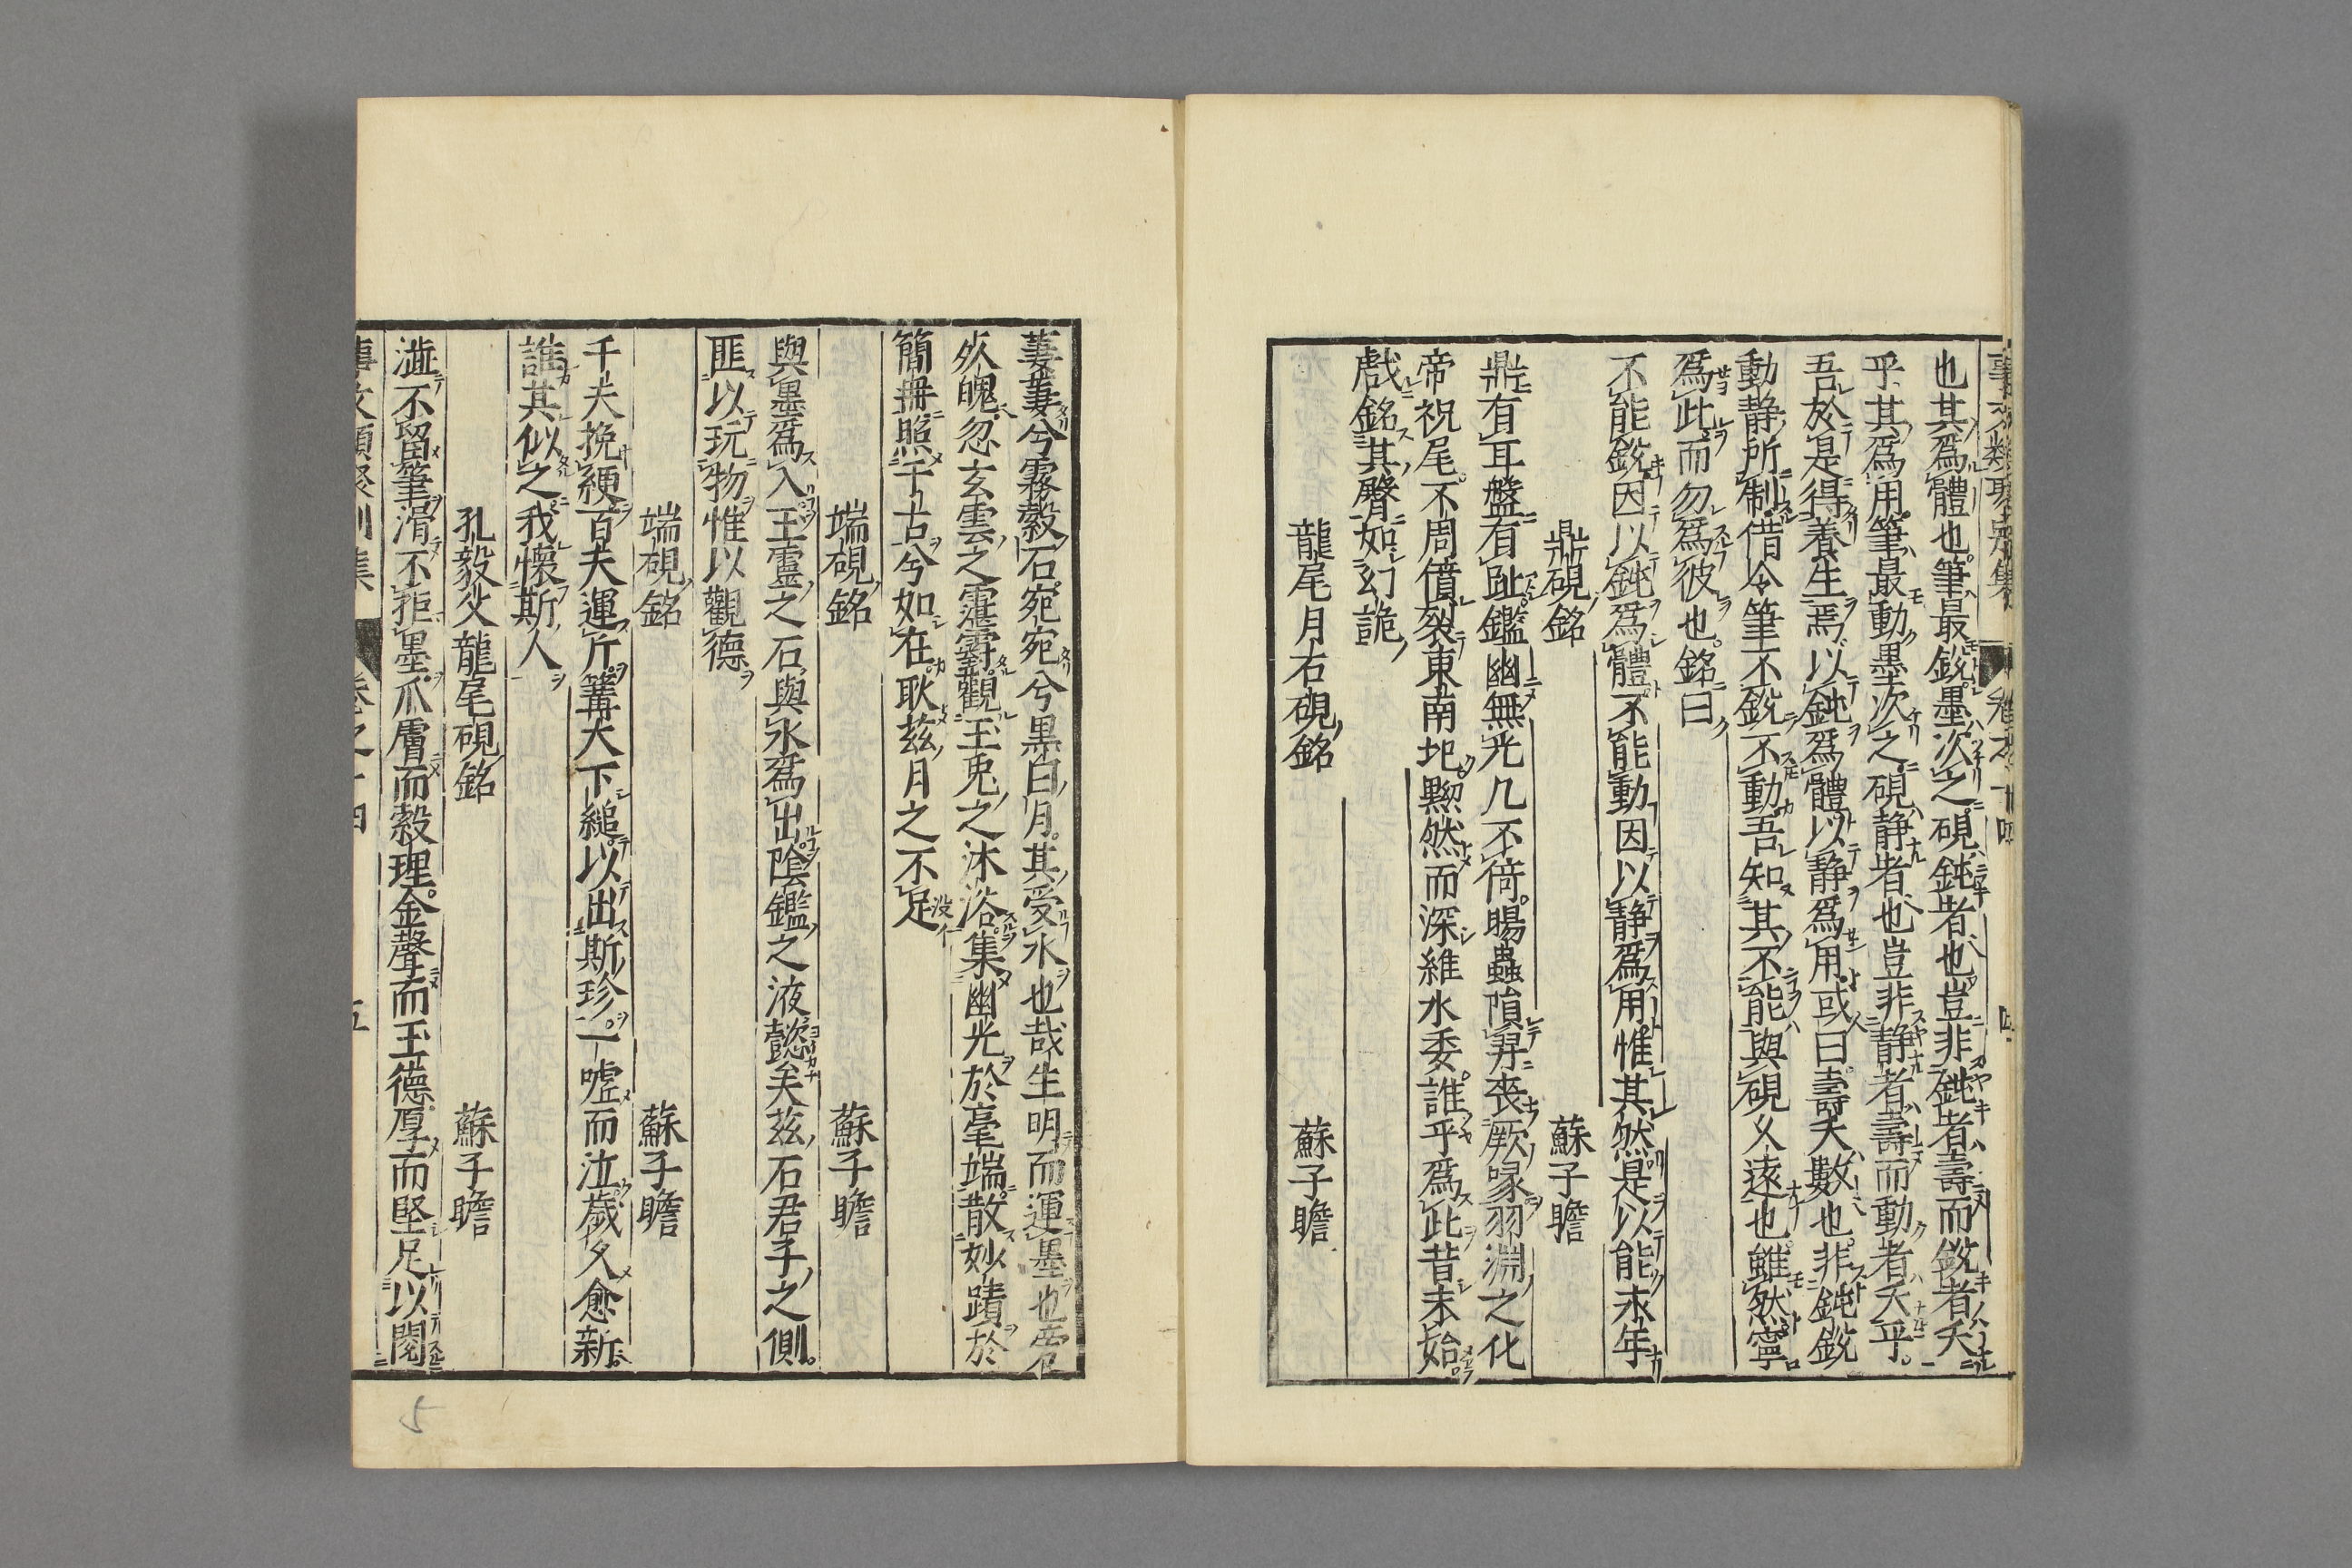 也其爲體也。筆最鋭墨次之硯鈍者也豈非鈍者壽而鋭者夭
乎其爲用筆最動墨次之硯静者也豈非静者壽而動者夭乎。
吾於是得養生焉以鈍爲體以静爲用或曰壽夭數也非鈍鋭
動静所制借令筆不鋭不動吾知其不能與硯久遠也雖然寧
爲此而勿爲彼也銘曰
不能鋭因以鈍爲體不能動因以静爲用惟其然是以能永年
鼎硯銘 蘇子瞻
鼎有耳盤有趾鑑幽無光几不倚暘蟲隕羿喪厥喙羽淵之化
帝祝尾不周僨裂東南圮黙然而深維水委誰乎爲此昔未始
戲銘其臀加幻詭
龍尾月石硯銘 蘇子瞻
萋萋兮霧縠石宛宛兮黒白月其受水也哉生明而運墨也旁
死魄忽玄雲之霮䨴觀玉兎之沐浴集幽光於毫端散妙蹟於
簡冊照千古兮如在耿兹月之不足
端硯銘 蘇子瞻
與墨爲入玉靈之石與水爲出陰鑑之液懿矣兹石君子之側
匪以玩物惟以觀德
端硯銘 蘇子瞻
千夫挽綆百夫運斤篝火下縋以出斯珍一嘘而泣歲久愈新
誰其似之我懷斯人
孔毅父龍尾硯銘 蘇子瞻
澁不留筆滑不拒墨爪膚而縠理金聲而玉德厚而堅足以閲
五
5